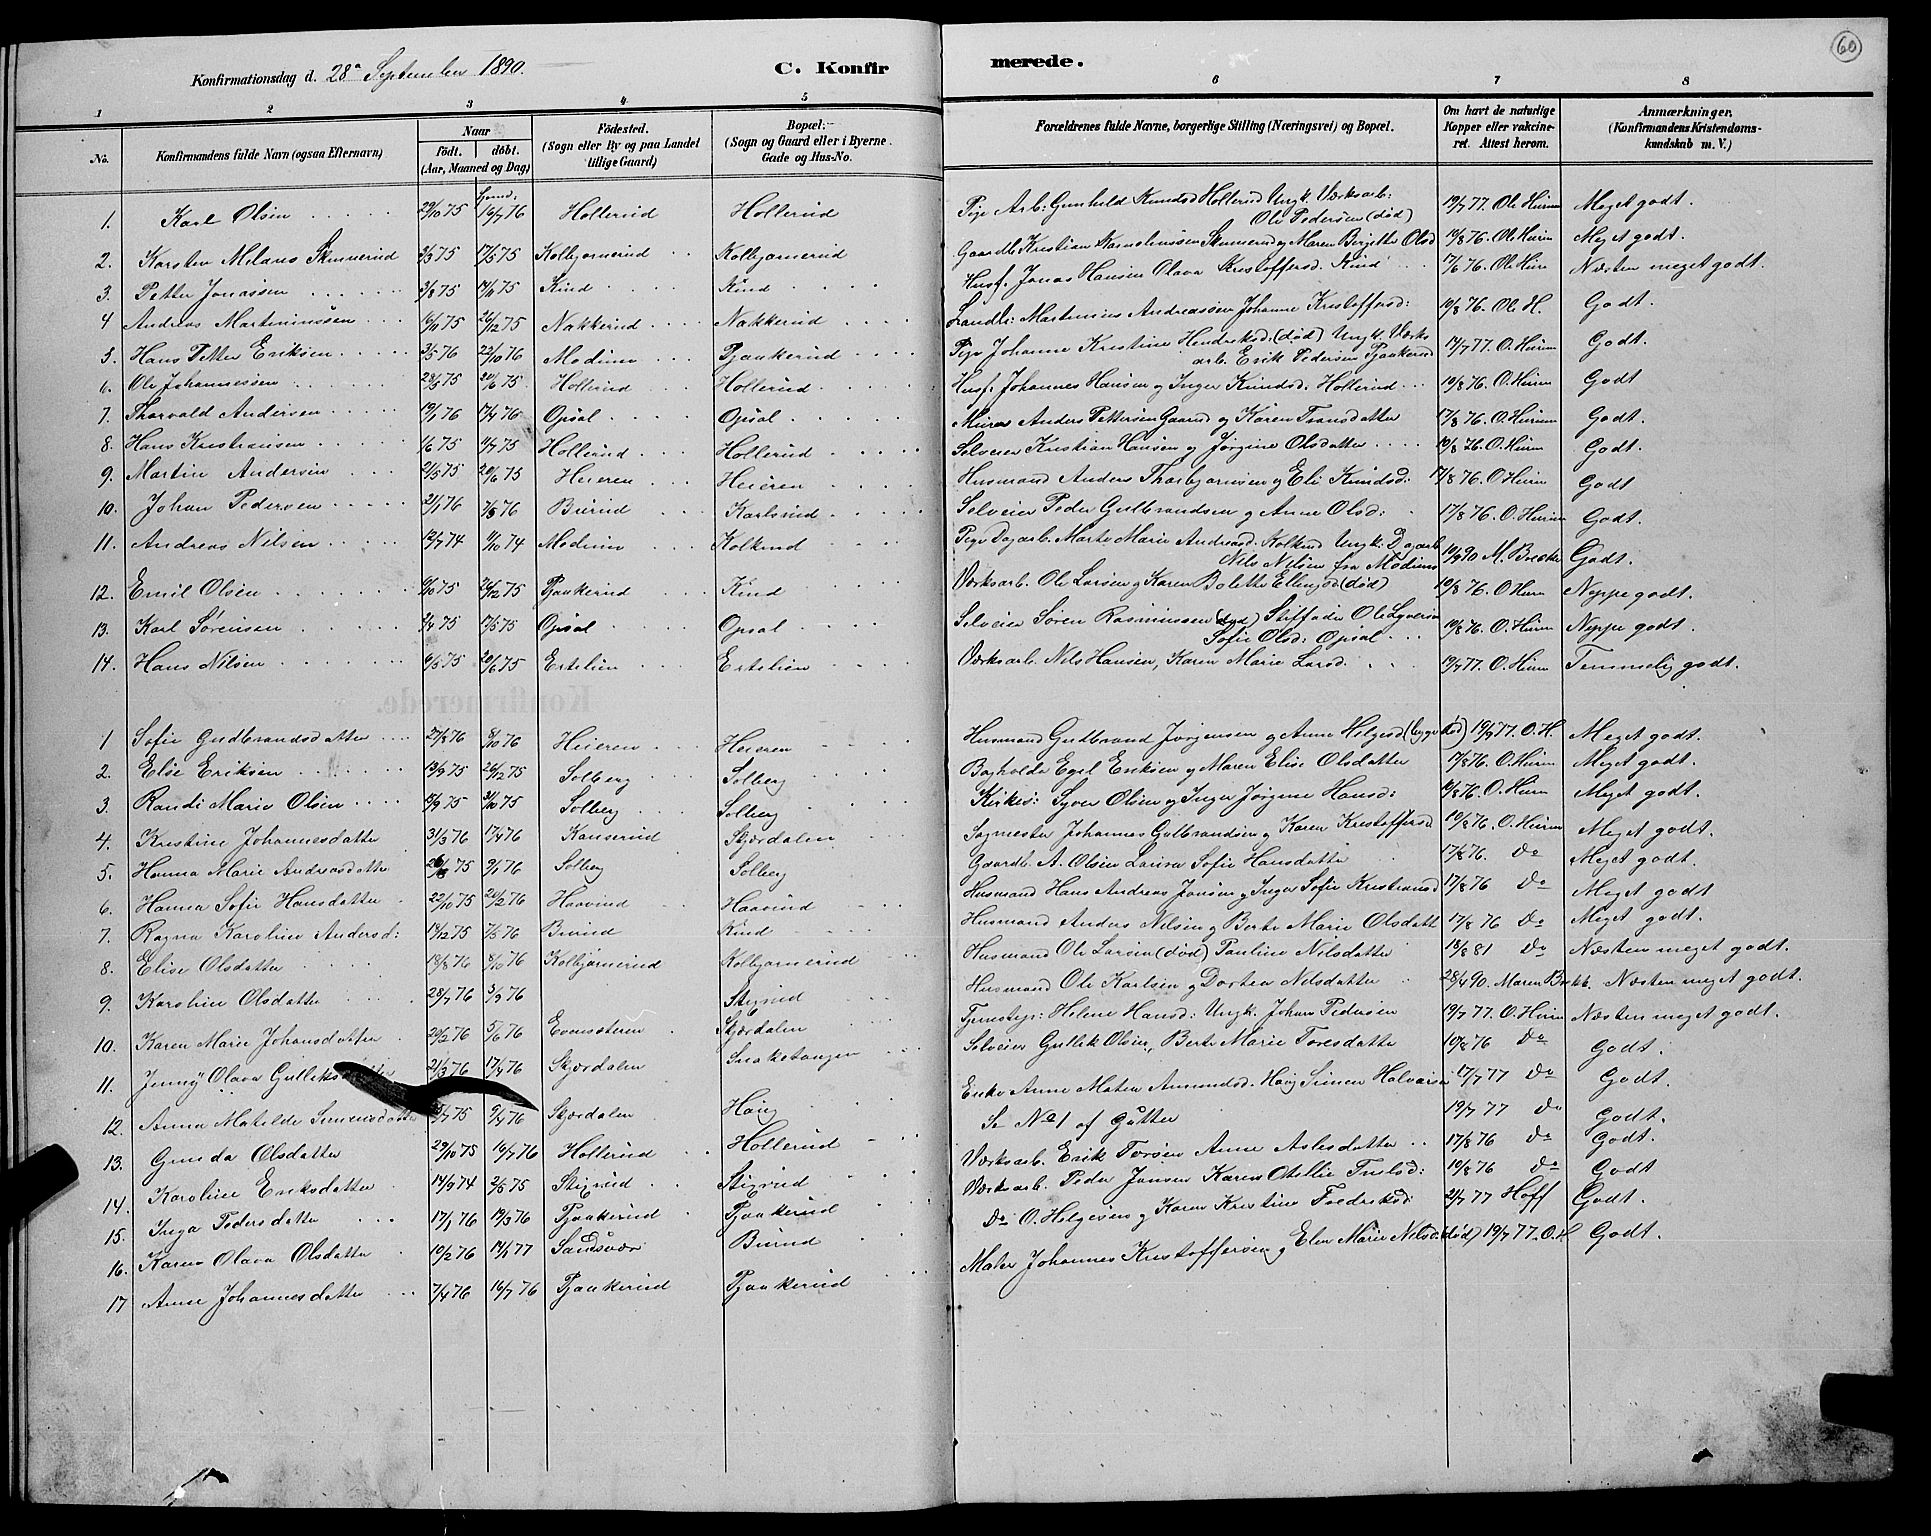 60
Konfirmationsdag d. 28de September 1890.
C. Konfirmerede.
1 2 3 4 5 6 7 8
No. Konfirmandens fulde Navn (ogsaa Efternavn) Naar födt. döbt. (Aar, Maaned og Dag) Födested. (Sogn eller By og paa Landet tillige Gaard) Bopæl: (Sogn og Gaard eller i Byerne Gade og Hus-No. Forældrenes fulde Navne, borgerlige Stilling (Næringsvei) og Bopæl. Om havt de naturlige Kopper eller vakcineret. Attest herom. Anmærkninger. (Konfirmandens Kristendomskundskab m. V.)
1. Karl Olsen 29/10 75 hjemd. 16/7 76 Hollerud Hollerud Pige Arb: Gunhild Knudsd Hollerud Ungk. Værksarb: Ole Pedersen (død) 19/7 77. Ole Hurum Meget godt.
2. Karsten Milaus Skinnerud 3/3 75 17/5 75 Kolbjørnerud Kolbjørnerud Gaardb. Kristian Skinnerud og Maren Birgitte Olsd 19/8 76. Ole Hurum Meget godt.
3. Petter Jonassen 3/8 75 17/10 75 Kind Kind Husf. Jonas Hansen Olava Kristoffersd. Kind 17/6 76. Ole Hurum Næsten meget godt.
4 Andreas Martiniussen 16/11 75 26/12 75 Nakkerud Nakkerud Landh: Martinius Andreassen Johanne Kristoffersd: 19/8 76. Ole H. Godt.
5. Hans Petter Eriksen 3/5 76 22/10 76 Modum Pjaakerud Pige Johanne Kristine Hendriksd (død) Ungk. Værksarb. Erik Pedersen Pjaakerud 17/7 77. O. Hurum Godt.
6. Ole Johannessen 23/5 75 20/6 75. Hollerud Hollerud Husf. Johannes Hansen og Inger Knudsd. Hollerud 19/8 76. O. Hurum Godt
7. Thorvald Andersen 19/1 76 17/4 76 Opsal Opsal Murer Anders Pettersen Gaard og Karen Fransdatter 17/8 76. O. Hurum Godt.
8. Hans Kristiansen 1/6 75 4/7 75 Hollerud Hollerud Selveier Kristian Hansen og Jørgine Olsdatter 19/8 76. O. Hurum Godt.
9. Martin Andersen 2/5 75 20/6 75 Heieren Heieren Husmand Anders Thorbjørnsen og Eli Knudsd: 17/8 76. O Hurum Godt
10. Johan Pedersen 21/1 76 7/5 76 Burud Karlsrud Selveier Peder Gulbrandsen og Anne Olsd: 17/8 76. O. Hurum Godt.
11. Andreas Nilsen 12/7 74 4/10 74 Modum Kolkind Pige Dagarb. Marte Marie Andreasd. Kolkind Ungk: Dagarb Nils Nilsen fra Modum 19/9 90 M. Brekke Godt.
12. Emil Olsen 9/10 75 26/12 75 Pjaakerud Kind Værksarb. Ole Larsen og Karen Bolette Ellingsd (død) 19/8 76. O Hurum Neppe godt.
13. Karl Sørensen 2/4 75 17/5 75 Opsal Opsal Selveier Søren Rasmussen (død) Stiffader Ole Syversen Sofie Olsd: Opsal 19/8 76. O. Hurum Neppe godt.
14. Hans Nilsen 6/5 75 20/6 75 Ertelien Ertelien Værksarb. Nils Hansen, Karen Marie Larsd. 19/7 77. O. Hurum Temmelig godt.
1 Sofie Gudbrandsdatter 27/8 76 8/10 76 Heieren Heieren Husmand Gudbrand Jørgensen og Anne Helgesd (begge død) 19/9 77. O. H. Meget godt.
2. Else Eriksen 13/9 75 26/12 75 Solberg Solberg Bagholder Egel Eriksen og Maren Elise Olsdatter 17/8 76. O. Hurum Meget godt.
3. Randi Marie Olsen 19/9 75 31/10 75 Solberg Solberg Kirkes: Syver Olsen og Inger Jørgine Hansd: 19/8 76. O. Hurum Meget godt.
4. Kristine Johannesdatter 31/3 76 17/4 76 Kanserud Skjærdalen Sagmester Johannes Gulbrandsen og Karen Kristoffersd 19/8 76. O. Hurum Meget godt.
5. Hanna Marie Andreasdatter 75 9/1 76 Solberg Solberg Gaardb. A. Olsen Laura Sofie Hansdatter 17/8 76. Do Meget godt.
6. Hanna Sofie Hansdatter 22/10 75 20/2 76 Haavind Haavind Husmand Hans Andreas Jonsen og Inger Sofie Kristiansd 17/8 76 Do Meget godt
7. Ragna Karoline Andersd: 19/12 75 7/5 76 Burud Kind Husmand Anders Nilsen og Berte Marie Olsdatt 17/8 76 Do Meget godt.
8. Elise Olsdatter 13/8 76 8/10 76 Kolbjørnerud Kolbjørnerud Husmand Ole Larsen (død) Pauline Nilsdatter 18/8 81 Do Næsten meget godt.
9. Karoline Olsdatter 28/7 76 3/9 76 Stigrud Husmand Ole Karlsen og Dortea Nilsdatter 28/4 90. Maren Brekk. Næsten meget godt.
10. Karen Marie Johansdatter 29/2 76 5/6 76 Evensæteren Skjærdalen Tjenestep: Helene Hansd: Ungk. Johan Pedersen 19/7 77. O. Hurum Næsten meget godt.
11. Jenny Olava Gulliksdatter 21/3 76 17/4 76 Skjærdalen Snakstangen Selveier Gullik Olsen, Berte Marie Toresdatter 19/8 76 Do Godt.
12. Anna Matilde Simensdatter 75 9/4 76 Skjærdalen Haug Enke Anne Matea Amundsd. Haug Simen Halvorsen 17/7 77 Do Godt.
13. Gunda Olsdatter 29/10 75 16/7 76 Hollerud Hollerud Se No 1 af Gutter 19/7 77 Do Godt.
14. Karoline Eriksdatter 14/9 74 2/5 75 Stigrud Stigrud Værksarb. Erik Torsen Anne Aslesdatter 17/8 76 Do Godt.
15. Inga Pedersdatter 17/1 76 19/3 76 Pjaakerud Pjaakerud Værksarb. Peder Jonsen Karen Otellie Truelsd: 19/8 76 Do Godt
16. Karen Olava Olsdatter 19/2 76 14/1 77 Sandsvær Burud Do O. Helgesen og Karen Kristine Fredriksd: 2/7 77 Hoff Godt.
17 Anne Johannesdatter 7/4 76 16/7 76 Pjaakerud Pjaakerud Maler Johannes Kristoffersen og Elen Marie Nilsd. (død) 19/7 77. O. H Godt.